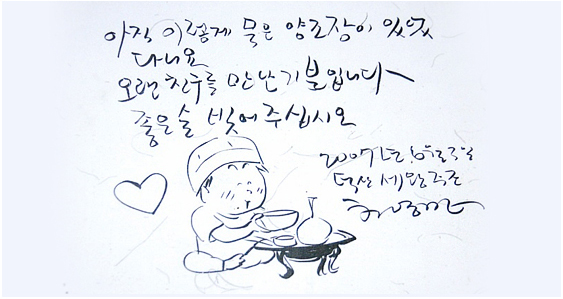 아직 이렇게 묵은 양조장이 있었
다니요
오랜 친구를 만난 기분입니다~
좋은 술 빚어 주십시오
2007년 6월 9일
덕산 세왕주조
허영만